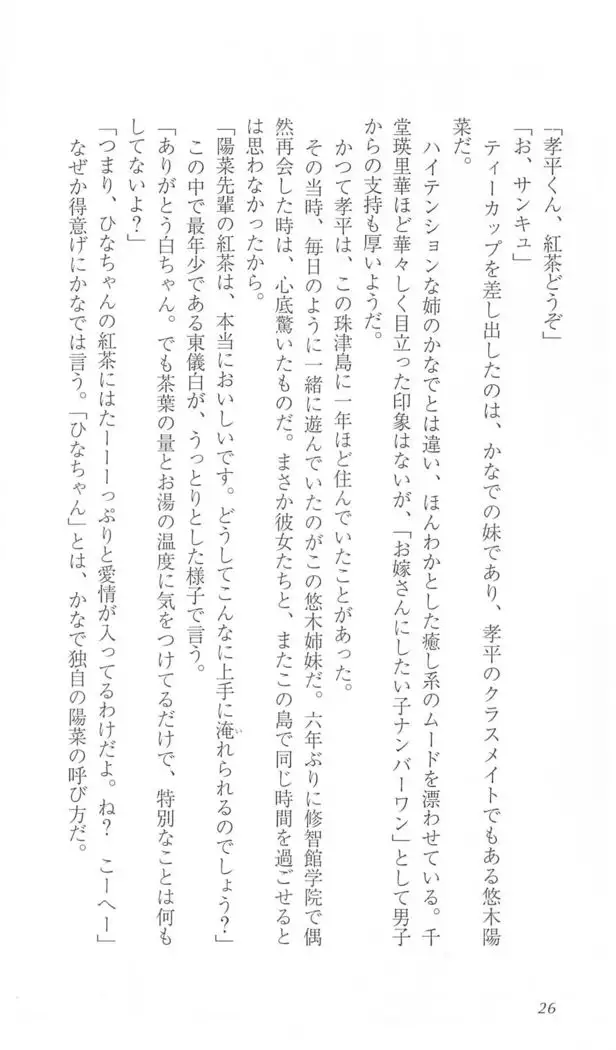 「孝平くん、紅茶どうぞ」
「お、サンキュ」
ティーカップを差し出したのは、かなでの妹であり、孝平のクラスメイトでもある悠木陽
菜だ。
ハイテンションな姉のかなでとは違い、ほんわかとした癒し系のムードを漂わせている。千
堂瑛里華ほど華々しく目立った印象はないが、「お嫁さんにしたい子ナンバーワン」として男子
からの支持も厚いようだ。
かつて孝平は、この珠津島に一年ほど住んでいたことがあった。
その当時、毎日のように一緒に遊んでいたのがこの悠木姉妹だ。六年ぶりに修智館学院で偶
然再会した時は、心底驚いたものだ。まさか彼女たちと、またこの島で同じ時間を過ごせると
は思わなかったから。
「陽菜先輩の紅茶は、本当においしいです。どうしてこんなに上手に淹れられるのでしょう?」
い
この中で最年少である東儀白が、うっとりとした様子で言う。
「ありがとう白ちゃん。でも茶葉の量とお湯の温度に気をつけてるだけで、特別なことは何も
してないよ?」
「つまり、ひなちゃんの紅茶にはたーーーっぷりと愛情が入ってるわけだよ。ね? こーへー」
なぜか得意げにかなでは言う。「ひなちゃん」とは、かなで独自の陽菜の呼び方だ。
26